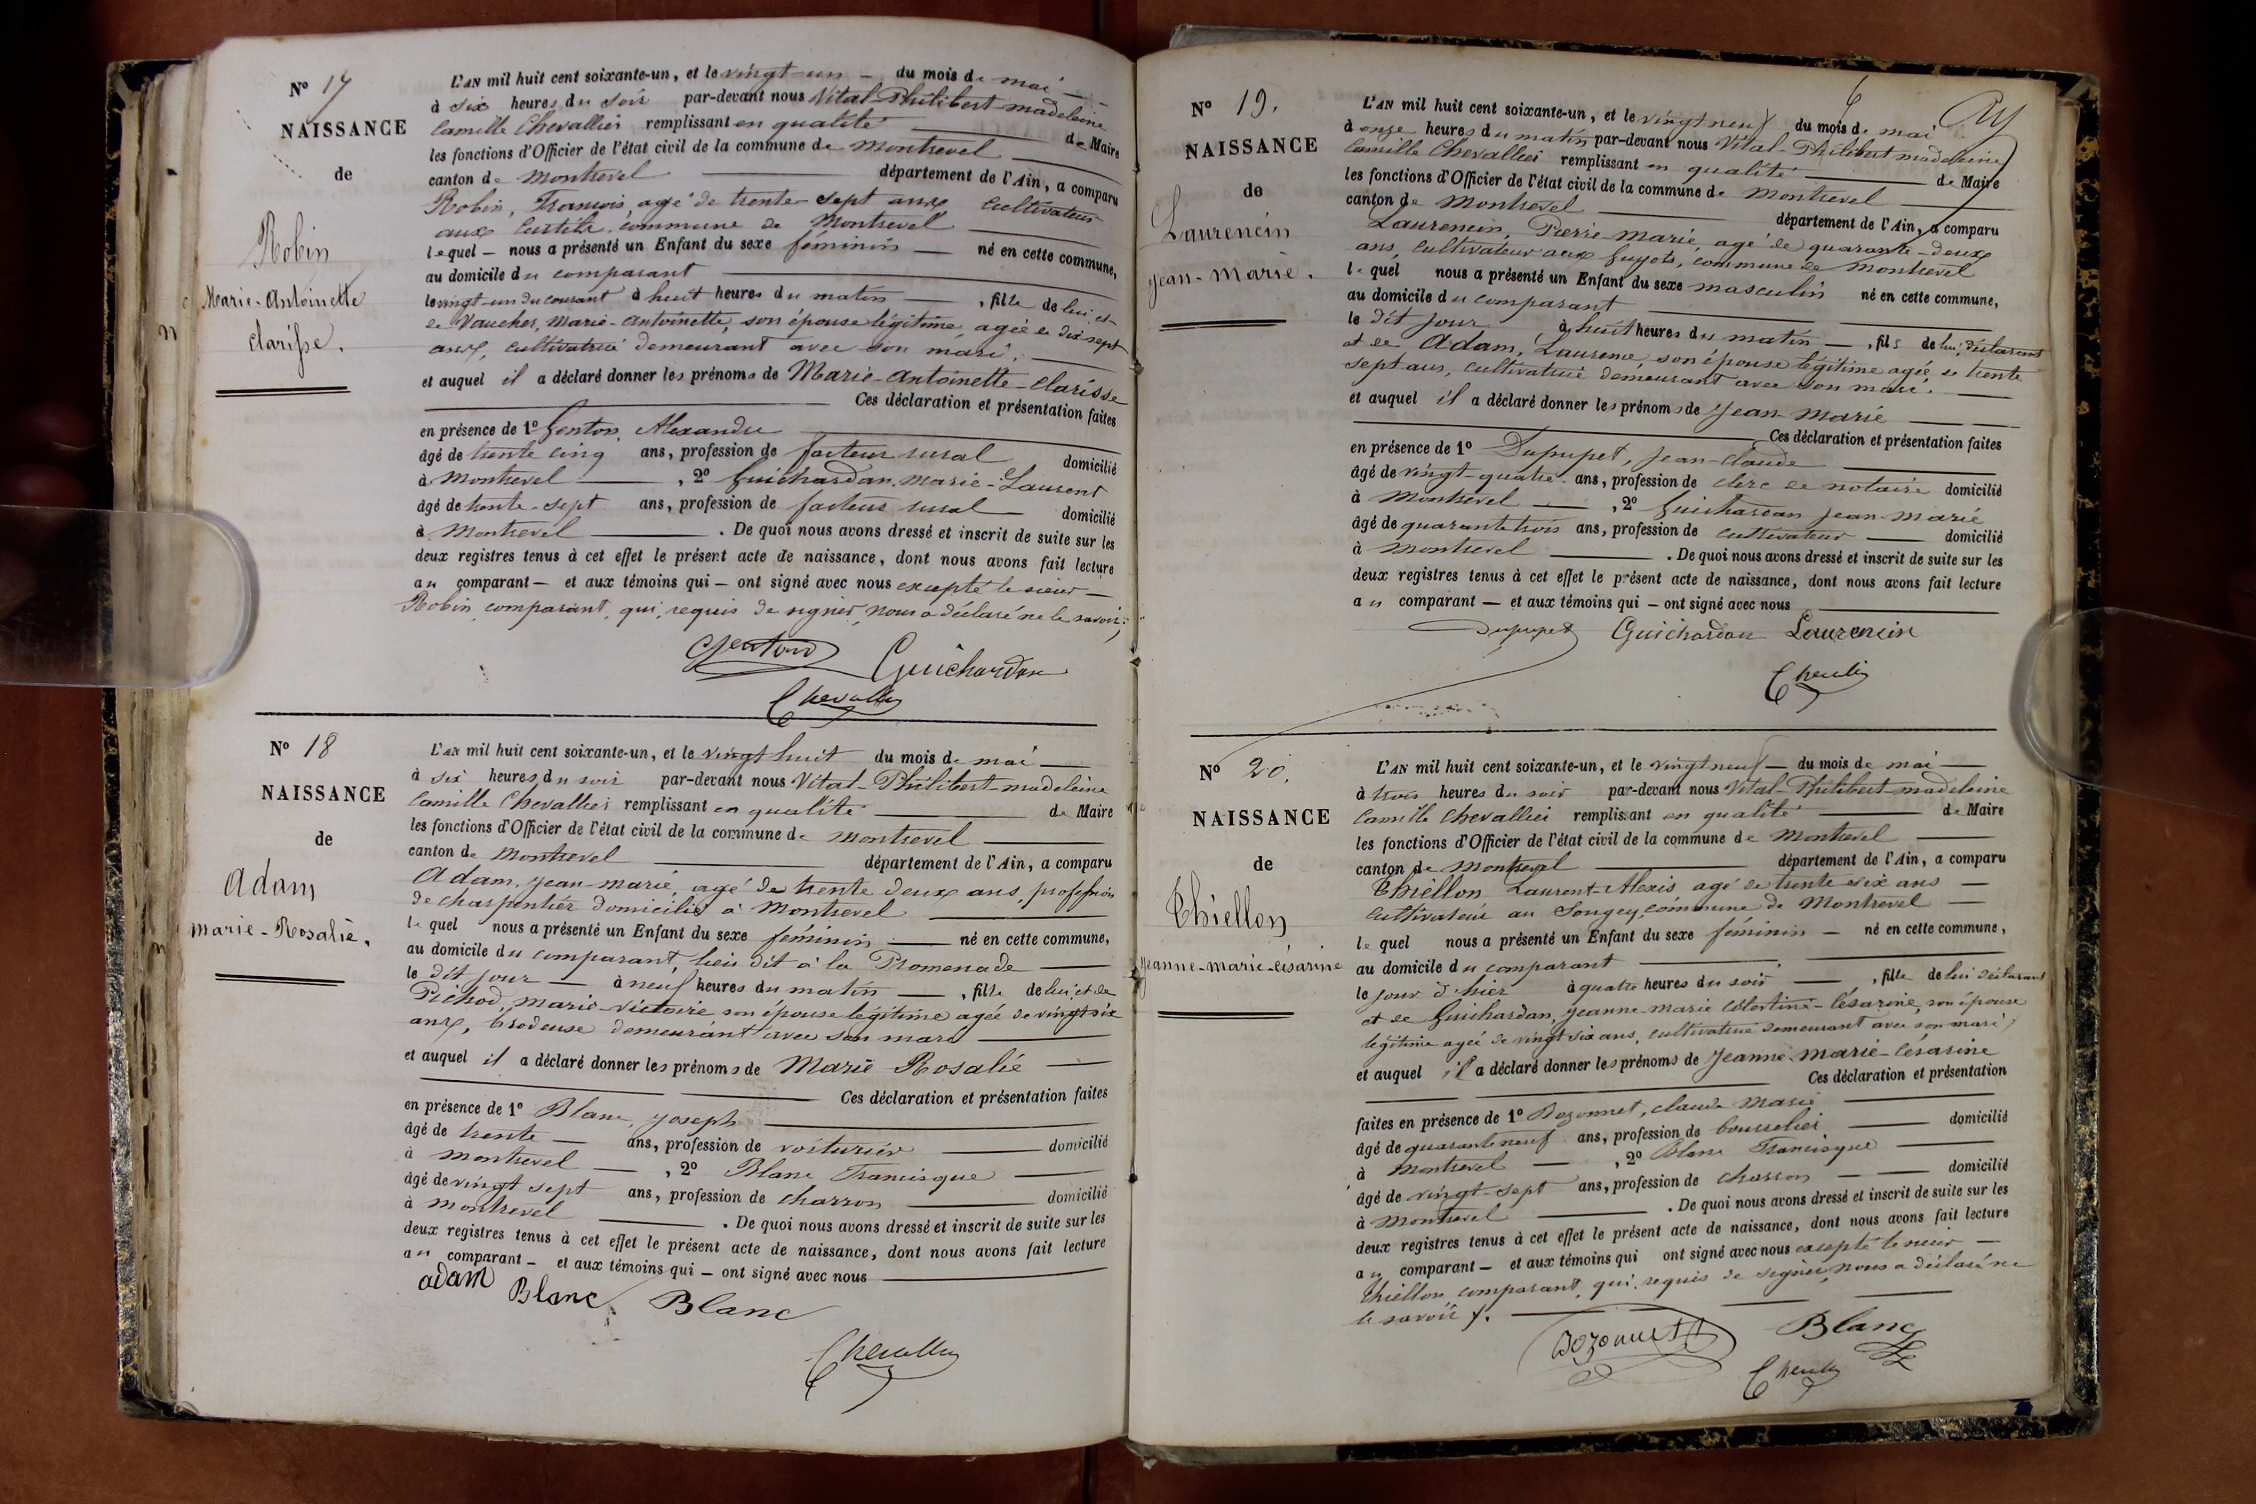 N° 17
NAISSANCE
de
Robin
Marie-Antoinette
Clarisse.
L'AN mil huit cent soixante-un, et le vingt-un du mois de mai
à six heures du soir par-devant nous Vital-Philibert-madeleine
Camille Chevallier remplissant en qualité de Maire
les fonctions d'Officier de l'état civil de la commune de Montrevel
canton de Montrevel département de l'Ain, a comparu
Robin, François, agé de trente-sept ans, cultivateur
aux commune de Montrevel
lequel nous a présenté un Enfant du sexe féminin né en cette commune,
au domicile du comparant
le vingt-un du courant à huit heures du matin, fille de lui et
de Vaucher, Marie-Antoinette, son épouse légitime, agée de dix-sept
ans, cultivatrice demeurant avec son mari.
et auquel il a déclaré donner les prénoms de Marie-Antoinette-Clarisse
Ces déclaration et présentation faites
en présence de 1° Genton, Alexandre
âgé de trente cinq ans, profession de facteur rural domicilié
à Montrevel, 2° Guichardan, Marie-Laurent
âgé de trente-sept ans, profession de facteur rural domicilié
à Montrevel. De quoi nous avons dressé et inscrit de suite sur les
deux registres tenus à cet effet le présent acte de naissance, dont nous avons fait lecture
au comparant — et aux témoins qui — ont signé avec nous excepté le sieur
Robin, comparant, qui, requis de signer, nous a déclaré ne le savoir.
Genton Guichardan
Chevallier
N° 18
NAISSANCE
de
Adam
Marie-Rosalie.
L'AN mil huit cent soixante-un, et le vingt huit du mois de mai
à six heures du soir par-devant nous Vital-Philibert-madeleine
Camille Chevallier remplissant en qualité de Maire
les fonctions d'Officier de l'état civil de la commune de Montrevel
canton de Montrevel département de l'Ain, a comparu
Adam, Jean-marie, agé de trente deux ans, profession
de charpentier domicilié à Montrevel
lequel nous a présenté un Enfant du sexe féminin né en cette commune,
au domicile du comparant, lieu dit à la Promenade
le dit jour à neuf heures du matin, fille de lui et de
Pichod, marie-victoire son épouse légitime agée de vingt-six
ans, brodeuse demeurant avec son mari
et auquel il a déclaré donner les prénoms de Marie Rosalie
Ces déclaration et présentation faites
en présence de 1° Blanc, Joseph
âgé de trente ans, profession de voiturier domicilié
à Montrevel, 2° Blanc Francisque
âgé de vingt sept ans, profession de charron domicilié
à Montrevel. De quoi nous avons dressé et inscrit de suite sur les
deux registres tenus à cet effet le présent acte de naissance, dont nous avons fait lecture
au comparant — et aux témoins qui — ont signé avec nous
adam Blanc Blanc
Chevallier
6
N° 19.
NAISSANCE
de
Laurencin
Jean-Marie.
L'AN mil huit cent soixante-un, et le vingt neuf du mois de mai
à onze heures du matin par-devant nous Vital-Philibert madeleine
Camille Chevallier remplissant en qualité de Maire
les fonctions d'Officier de l'état civil de la commune de Montrevel
canton de Montrevel département de l'Ain, a comparu
Laurencin, Pierre-marie, agé de quarante-deux
ans, cultivateur aux Guyots, commune de Montrevel
lequel nous a présenté un Enfant du sexe masculin né en cette commune,
au domicile du comparant
le dit jour à huit heures du matin, fils de lui, déclarant
et de Adam, Laurence son épouse légitime agée de trente
sept ans, cultivatrice demeurant avec son mari.
et auquel il a déclaré donner les prénoms de Jean Marie
Ces déclaration et présentation faites
en présence de 1° Dupupet, Jean-Claude
âgé de vingt-quatre ans, profession de clerc de notaire domicilié
à Montrevel, 2° Guichardan Jean-Marie
âgé de quarante trois ans, profession de cultivateur domicilié
à Montrevel. De quoi nous avons dressé et inscrit de suite sur les
deux registres tenus à cet effet le présent acte de naissance, dont nous avons fait lecture
au comparant — et aux témoins qui — ont signé avec nous
Dupupet Guichardan Laurencin
N° 20.
NAISSANCE
de
Thiellon
Jeanne-marie-césarine
L'AN mil huit cent soixante-un, et le vingt neuf du mois de mai
à trois heures du soir par-devant nous Vital-Philibert madeleine
Camille Chevallier remplissant en qualité de Maire
les fonctions d'Officier de l'état civil de la commune de Montrevel
canton de Montrevel département de l'Ain, a comparu
Thiellon Laurent-Alexis agé de trente six ans
cultivateur au Sougey, commune de Montrevel
lequel nous a présenté un Enfant du sexe féminin né en cette commune,
au domicile du comparant
le jour d'hier à quatre heures du soir, fille de lui déclarant
et de Guichardan, Jeanne marie Célestine-Césarine, son épouse
légitime agée de vingt six ans, cultivatrice demeurant avec son mari
et auquel il a déclaré donner les prénoms de Jeanne-Marie-Césarine
Ces déclaration et présentation
faites en présence de 1° Bozonnet, claude Marie
âgé de quarante neuf ans, profession de bourrelier domicilié
à Montrevel, 2° Blanc Francisque
âgé de vingt-sept ans, profession de charron domicilié
à Montrevel. De quoi nous avons dressé et inscrit de suite sur les
deux registres tenus à cet effet le présent acte de naissance, dont nous avons fait lecture
au comparant — et aux témoins qui ont signé avec nous excepté le sieur
Thiellon comparant, qui, requis de signer, nous a déclaré ne
le savoir.
Bozonnet Blanc